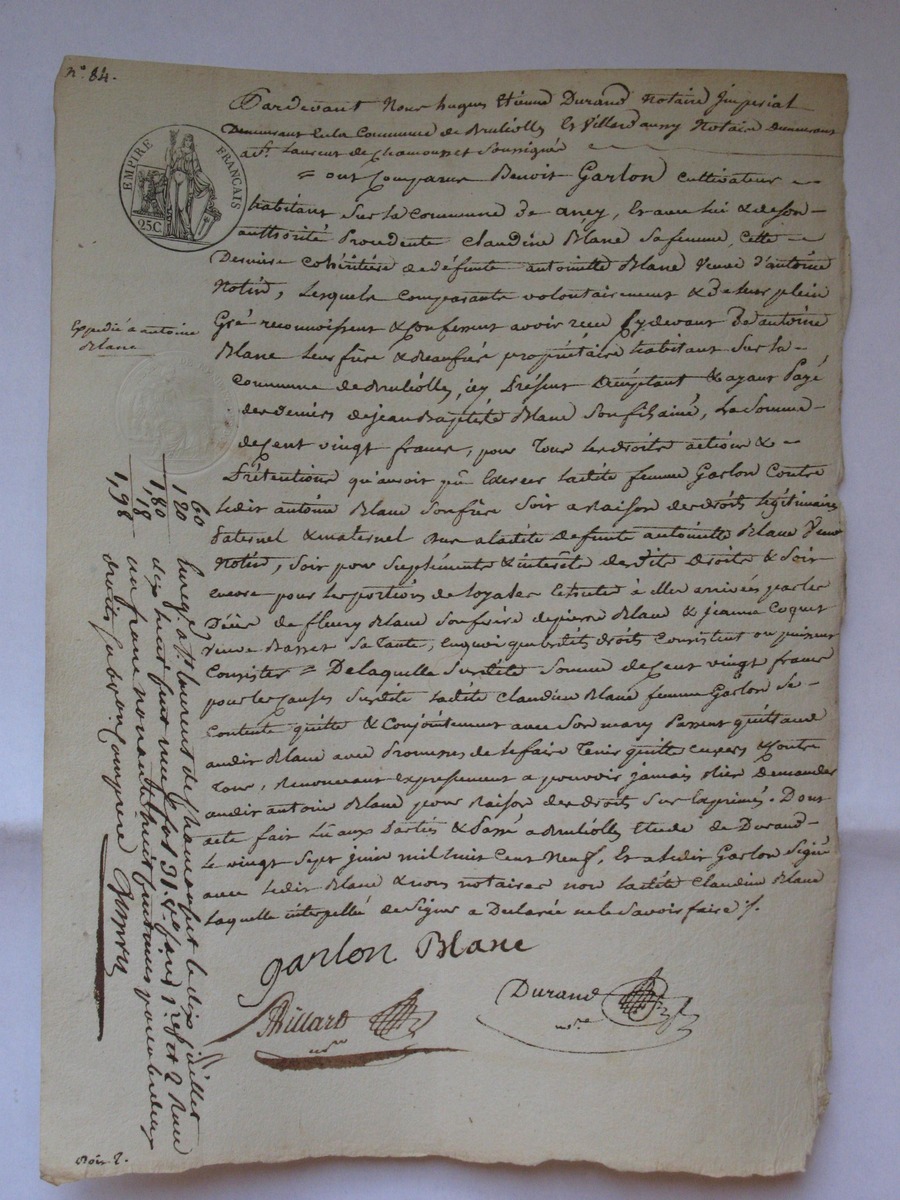 n.° 84.
Pardevant Nous hugues Etienne Durand notaire Imperial
Demeurant En la Commune de Bruliolles Et Villard aussy Notaire Demeurant
a St. Laurent de Chamousset Soussignés
= ont Comparus Benoit Garlon cultivateur
habitant Sur la Commune de ancy, Et avec lui & de son
authorité Procedente Claudine Blanc Sa femme, cette
Derniere Cohéritiere de défunte antoinette Blanc Veuve d'antoine
Notin, Lesquels Comparants volontairement & De leur plein
Gré reconnoissent & Confessent avoir reçu Cy devant D'antoine
Blanc leur frère & Beaufrère propriétaire habitant Sur la
Commune de Brulliolles, icy Présent acceptant & ayant Payé
des deniers de jean Baptiste Blanc Son fils ainé, La Somme
de Cent vingt francs, pour Tous les droits actions &
Prétentions qu'avoit pû Exercer la dite femme Garlon Contre
Le dit antoine Blanc Son frère Soit a Raison des droits légitimaires
Paternel & maternel que a la dite défunte antoinette Blanc Veuve
Notin, Soit pour Supléments & intérêts des dits droits & Soit
encore pour les portions de loyales Echutes à elle arrivées par le
Décès de fleury Blanc Son frère de pierre Blanc & jeanne Coquet
Veuve Basset Sa Tante, en quoi que les dits droits Consistent ou puissent
Consister = De laquelle Susdite Somme de Cent vingt francs
pour les Causes Susdites la dite Claudine Blanc femme Garlon Se
Contente quitte & Conjointement avec Son mary Passent quittance
au dit Blanc avec Promesses de le faire Tenir quitte envers & Contre
Tous, Renonceant expressement a pouvoir jamais Rien Demander
au dit antoine Blanc pour Raison des droits Sus Exprimés. Dont
acte fait Lu aux Parties & Passé a Brulliolles Etude de Durand
Le vingt Sept juin mil huit Cent Neuf, Et a le dit Garlon Signé
avec le dit Blanc & nous notaires non la dite Claudine Blanc
Laquelle interpellée de Signer a Declarée ne le Savoir faire ./.
garlon Blanc
Villard
nre
Durand
nre
EMPIRE FRANÇAIS
25C
Expedié a antoine
Blanc
60
120
1,80
,18
1,98
Enreg. a St. Laurent de Chamousset le dix juillet
dix huit cent neuf fol 31. v.° Reçu
un franc nonante huit Centimes pour les deux
droits Subvon Comprise
Rôle 2.